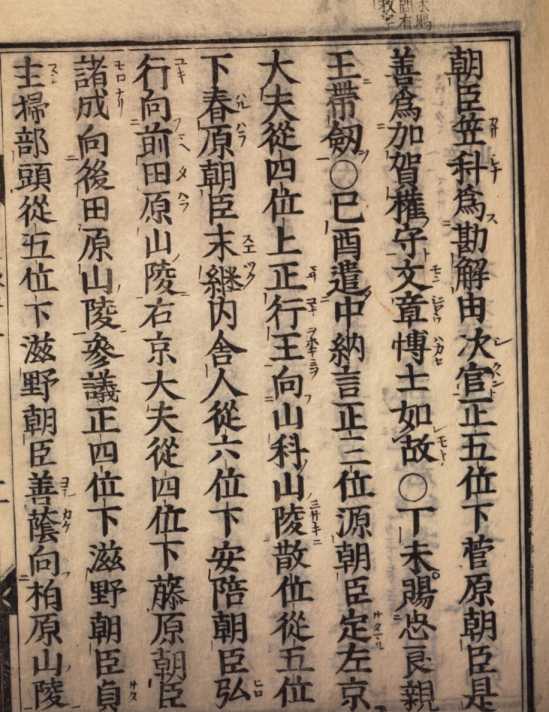 朝臣笠科爲勘解由次官正五位下菅原朝臣是
善爲加賀權守文章博士如故○丁未賜忠良親
王帶劔○己酉遣中納言正三位源朝臣定左京
大夫從四位上正行王向山科山陵散位從五位
下春原朝臣末継内舎人從六位下安陪朝臣弘
行向前田原山陵右京大夫從四位下藤原朝臣
諸成向後田原山陵參議正四位下滋野朝臣貞
主掃部頭從五位下滋野朝臣善蔭向柏原山陵